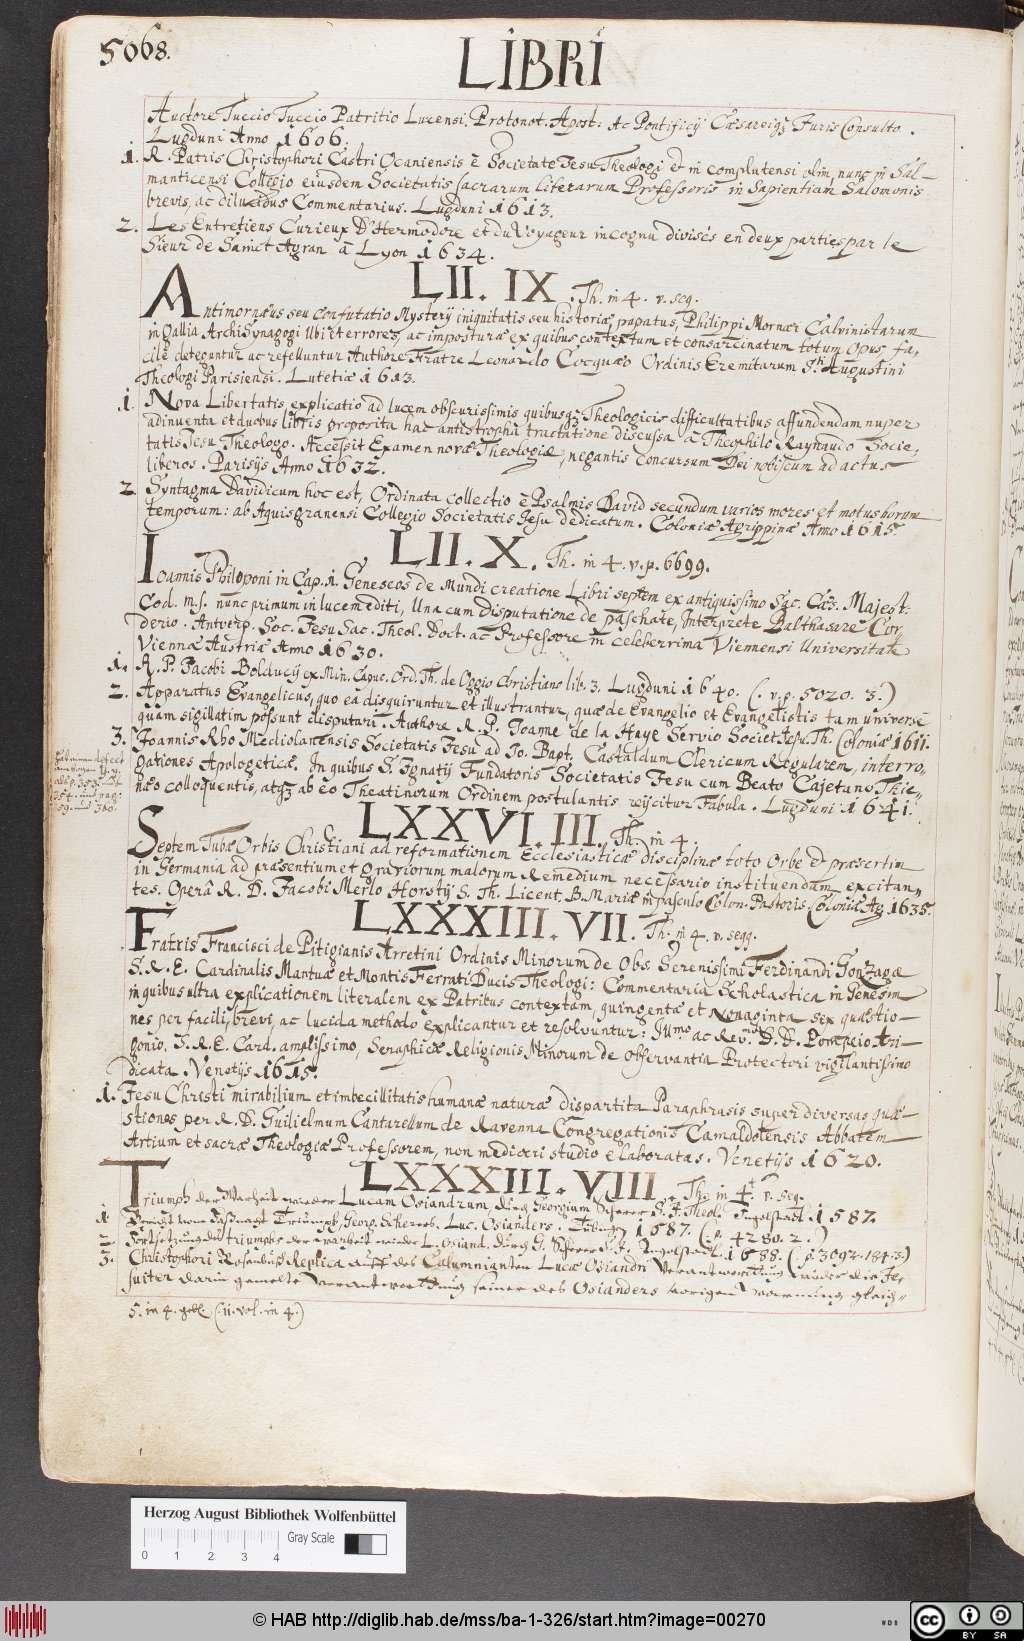 5068.
LIBRI
Auctore Tuccio Tuccio Patritio Lucensi. Protonot. Apost: Ac Pontificij Cæsareiq3 Juris Consulto.
Lugduni Anno 1606.
1. R. Patris Christophori Castri Ocaniensis è Societate Jesu Theologi et in complutensi olim, nunc in Sal-
manticensi Collegio eiusdem Societatis sacrarum literarum Professoris in Sapientiam Salomonis
brevis, ac dilucidus Commentarius. Lugduni 1613.
2. Les Entretiens Curieux D'Hermodore et du Voyageur incognu divisés en deux parties par le
Sieur de Sainct Agran à Lyon 1634.
LII. IX. Th. in 4. v. seq.
Antimornæus seu confutatio Mysterij iniquitatis seu historiæ, papatus, Philippi Mornæi Calvinistarum
in Gallia ArchiSynagogi Ubi et errores, ac imposturæ ex quibus contextum et consarcinatum totum opus, fa,
cile deteguntur ac refelluntur Authore Fratre Leonardo Cocquæo Ordinis Eremitarum S. Augustini
Theologi Parisiensi. Lutetiæ 1613.
1. Nova Libertatis explicatio ad lucem obscurissimis quibusq3 Theologicis difficultatibus affundendam nuper
adinventa et duobus libris proposita hac antistropha tractatione discussa à Theophilo Raynaudo Socie,
tatis Jesu Theologo. Accessit Examen novæ Theologiæ, negantis concursum Dei nobiscum ad actus
liberos. Parisijs Anno 1632.
2. Syntagma Davidicum hoc est, Ordinata collectio è Psalmis David secundum varios mores et motus horum
temporum: ab Aquisgranensi Collegio Societatis Jesu dedicatum. Coloniæ Agrippinæ Anno 1615.
LII. X. Th. in 4. v. p. 6699.
Ioannis Philoponi in Cap. 1. Geneseos de Mundi creatione Libri septem ex antiquissimo Sac. Cæs. Majest:
Cod. m.s. nunc primum in lucem editi, Una cum Disputatione de paschate, Interprete Balthasare Cor,
derio. Antverp. Soc. Jesu Sac. Theol. Doct. ac Professore in celeberrima Viennensi Universitate
Viennæ Austriæ Anno 1630.
1. R. P. Jacobi Bolducij ex Min. Capuc. Ord. Th. de Oggio Christiano lib. 3. Lugduni 1640. (. v. p. 5020. 3.)
2. Apparatus Evangelicus, quo ea disquiruntur et illustrantur, quæ de Evangelio et Evangelistis tam universè
quàm sigillatim possunt disputari. Authore R. P. Joanne de la Haye Servio Societ. Jesu. Th. Coloniæ 1611.
3. Joannis Rho Mediolanensis Societatis Jesu ad Jo. Bapt. Castaldum Clericum Regularem, interro,
gationes Apologeticæ. In quibus S. Ignatij Fundatoris Societatis Jesu cum Beato Cajetano Thie,
næo colloquentis, atq3 ab eo Theatinorum Ordinem postulantis reijcitur Fabula. Lugduni 1641.
LXXVI. III. Th. in 4.
Septem Tubæ Orbis Christiani ad reformationem Ecclesiasticæ disciplinæ toto Orbe et præsertim
in Germania ad præsentium et graviorum malorum Remedium necessario instituendam excitan,
tes. Operâ R. D. Jacobi Merlo Horstij S. Th. Licent. B. Mariæ in pasculo Colon. Pastoris. Coloniæ Ag. 1635.
LXXXIII. VII. Th. in 4. v. seqq.
Fratris Francisci de Pitigianis Arretini Ordinis Minorum de Obs. Serenissimi Ferdinandi Gonzagæ
S. R. E. Cardinalis Mantuæ et Montis Ferrati Ducis Theologi: Commentaria Scholastica in Genesim
in quibus ultra explicationem literalem ex Patribus contextam, quingentæ et Nonaginta sex quæstio-
nes per facili, brevi, ac lucida methodo explicantur et resolvuntur: Illmo ac Rev.mo D. D. Pompeio Arri-
gonio, S. R. E. Card. amplissimo, Seraphicæ Religionis Minorum de observantia Protectori vigilantissimo
Dicata. Venetijs 1615.
1. Jesu Christi mirabilium et imbecillitatis humanæ naturæ dispartita Paraphrasis super diversas quæ-
stiones per R. D. Guilielmum Cantarellum de Ravenna Congregationis Camaldolensis Abbatem
Artium et sacræ Theologiæ Professorem, non mediocri studio elaboratas. Venetijs 1620.
LXXXIII. VIII. Th. in 4. v. seq.
Triumph der Warheit wieder Lucam Osiandrum, durch Georgium Scherer S. J. Theol. Ingolstadt 1587.
1. Triumph, Georg. Scherers. Luc. Osianders. Tübingen 1587. (. p. 4280. 2.)
2. Fortsetzung des triumphs der warheit wieder L. Osiand. durch G. Scherer S. J. Ingolstadt. 1588. (. p. 3092. 184. 3.)
3. Christophori Rosenbusch Replica auff des Calumnianten Lucæ Osiandri Verantwortung wieder die Je,
suiter darin gemelte verantwortung seiner des Osianders vorigen warnung gleich,
5. in 4. gebl. (. 11. vol. in 4.)
Herzog August Bibliothek Wolfenbüttel
Gray Scale
0 1 2 3 4
© HAB http://diglib.hab.de/mss/ba-1-326/start.htm?image=00270
WDB
cc BY SA